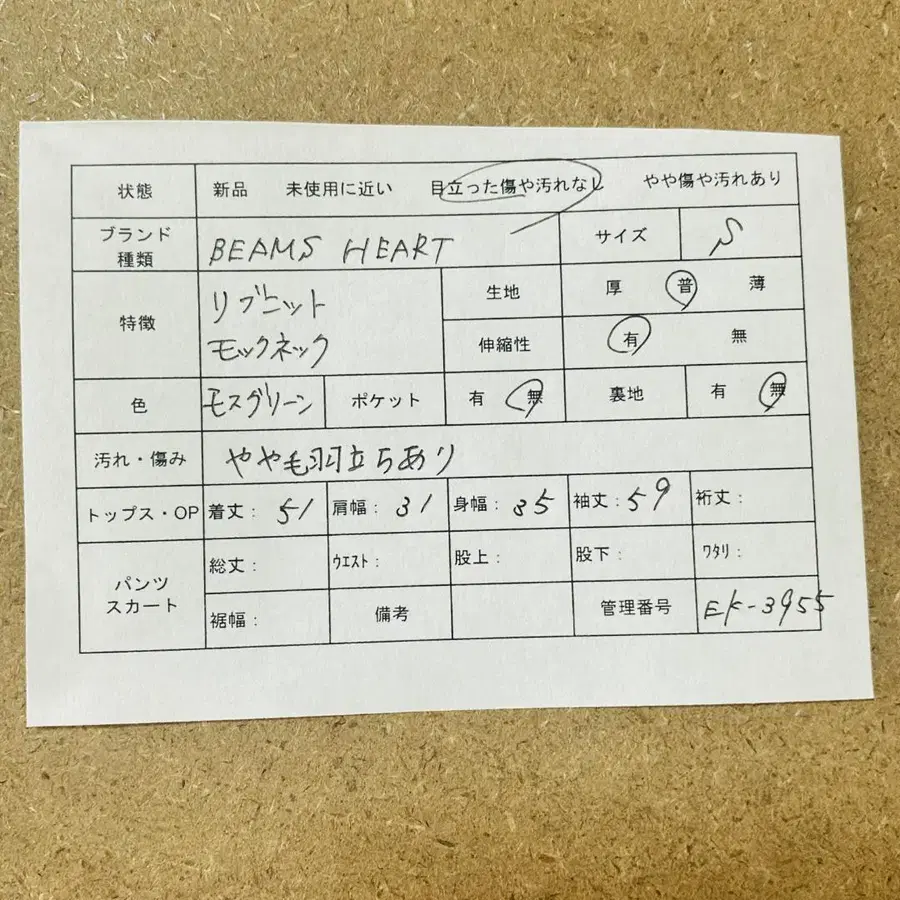 状態 新品 未使用に近い 目立った傷や汚れなし やや傷や汚れあり
ブランド
種類 BEAMS HEART サイズ S
特徴 リブニット
モックネック
生地 厚 普 薄
伸縮性 有 無
色 モスグリーン ポケット 有 無 裏地 有 無
汚れ・傷み やや毛羽立ちあり
トップス・OP 着丈: 51 肩幅: 31 身幅: 35 袖丈: 59 裄丈:
パンツ
スカート
総丈: ウエスト: 股上: 股下: ワタリ:
裾幅: 備考 管理番号 EK-3955